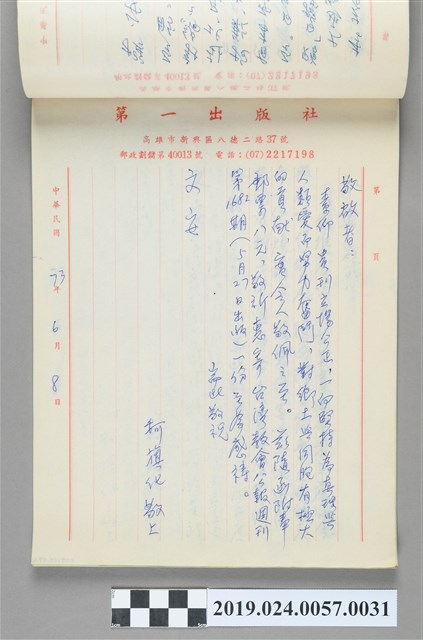 第一出版社
高雄市新興區八德二路37號
郵政劃撥第40013號　電話：(07)2217198
第　頁
敬啟者：
素仰貴刊立場公正，一向堅持為真理與
人類愛而努力奮鬥，對鄉土與同胞有極大
的貢獻，實令人敬佩之至。茲隨函附奉
郵票八元，敬祈惠寄台灣教會公報週刊
第1682期（5月27日出版）一份，至為感禱。
耑此敬祝
文安
柯旗化敬上
中華民國73年6月8日
2019.024.0057.0031